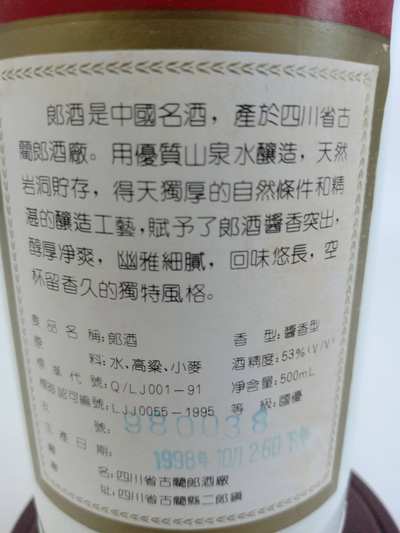 郎酒是中國名酒，產於四川省古
藺郎酒廠。用優質山泉水釀造，天然
岩洞貯存，得天獨厚的自然條件和精
湛的釀造工藝，賦予了郎酒醬香突出，
醇厚淨爽，幽雅細膩，回味悠長，空
杯留香久的獨特風格。
食品名稱:郎酒 香型:醬香型
原料:水、高粱、小麥 酒精度:53%(V/V)
標準代號:Q/LJ001-91 淨含量:500mL
標誌認可編號:LJJ0055-1995 等級:國優
批號: 980038
生產日期: 1998年10月26日
廠名:四川省古藺郎酒廠
廠址:四川省古藺縣二郎鎮